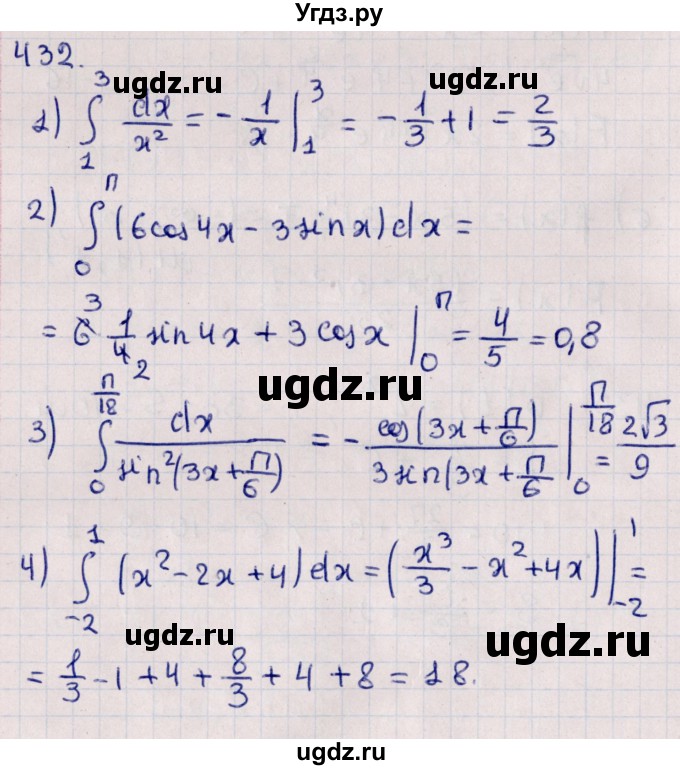 Угдз.ру
432.
ugdz.ru ugdz.ru
1) ∫₁³ dx/x² = -1/x |₁³ = -1/3 + 1 = 2/3
2) ∫₀^π (6cos4x - 3sinx)dx =
= 6 3 1/4 2 sin4x + 3cosx |₀^π = 4/5 = 0,8
ugdz.ru
3) ∫₀^(π/18) dx/sin²(3x+π/6) = - cos(3x+π/6)/3sin(3x+π/6 |₀^(π/18) = 2√3/9
4) ∫₋₂¹ (x²-2x+4)dx = (x³/3 - x²+4x)|₋₂¹ =
ugdz.ru ugdz.ru
= 1/3 - 1 + 4 + 8/3 + 4 + 8 = 18.
ugdz.ru